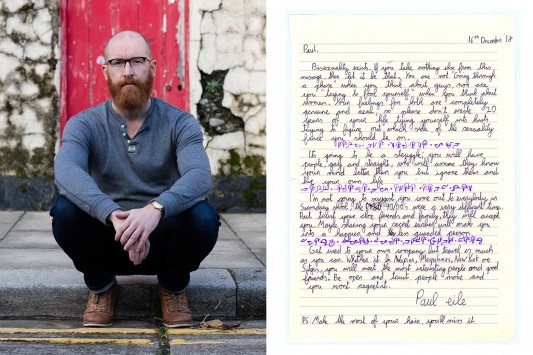 16th December 17
Paul,
Bisexuality exists. If you take nothing else from this
message then let it be that. You are not "Going through
a phase" when you think about guys, nor are
you "trying to fool yourself" when you think about
women. Your feelings for both are completely
genuine and real, so please don't waste 20
years of your life tying yourself into knots
trying to figure out which side of the sexuality
fence you should be on.
It's going to be a struggle, you will have
people, gay and straight, who will assume they know
your mind better than you but ignore them and
live your own life.
I'm not going to suggest you come out to everybody, in
Swansea, the 90/00s were a very different time.
But trust your close friends and family, they will accept
you. Maybe sharing your secret earlier will make you
into a happier and less guarded person.
Get used to your own company but travel as much
as you can. Whether it be Naples, New York or
Spain, you will meet the most interesting people and good
friends. Be open and trust people more and
you won't regret it.
Paul
PS: Make the most of your hair, you'll miss it.